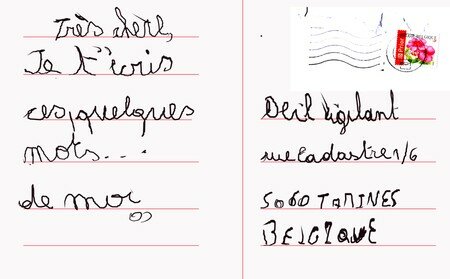 Très chere,
Je t'écris
ces, quelques
mots...
de moi
Oeil Vigilant
rue Cadastre 1/6
5060 TAMINES
BELGIQUE